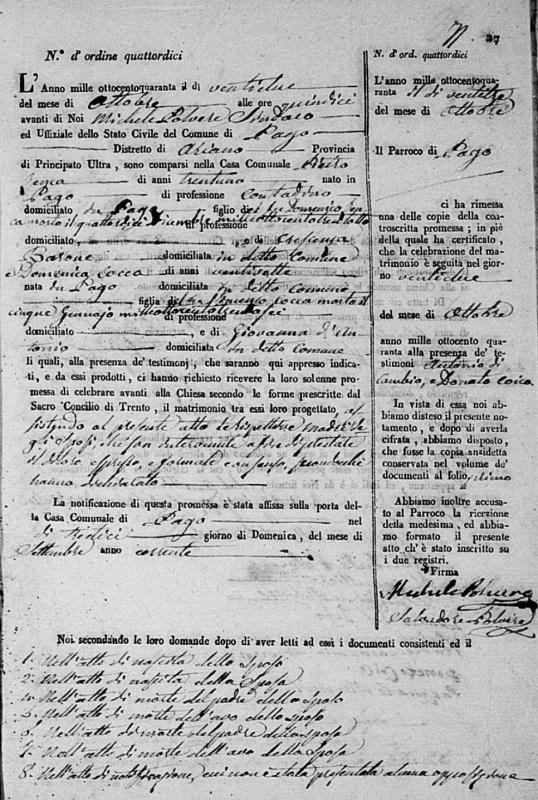 27
N.° d' ordine quattordici
L'Anno mille ottocentoquaranta il di ventidue
del mese di Ottobre alle ore quindici
avanti di Noi Michele Polvere Sindaco
ed Uffiziale dello Stato Civile del Comune di Pago
Distretto di Ariano Provincia
di Principato Ultra, sono comparsi nella Casa Comunale Pietro
di anni trentuno nato in
Pago di professione contadino
domiciliato in Pago figlio di Domenico
morto il quattordici milleottocentotrentotto
di professione
domiciliato e di Crescenza
Barone domiciliata in detto Comune
e Domenica Cocca di anni ventisette
nata in Pago domiciliata in detto Comune
figlia del fu Cocca morto il
cinque Gennajo milleottocentotrentasei
di professione
domiciliato e di Giovanna d'An
tonio domiciliata in detto Comune
li quali, alla presenza de' testimonj, che saranno qui appresso indica-
ti, e da essi prodotti, ci hanno richiesto ricevere la loro solenne pro-
messa di celebrare avanti alla Chiesa secondo le forme prescritte dal
Sacro Concilio di Trento, il matrimonio tra essi loro progettato, as
sistendo al presente atto le rispettive madri de
gli sposi, che
il loro espresso, e formale consenso
hanno dichiarato
La notificazione di questa promessa è stata affissa sulla porta del-
la Casa Comunale di Pago nel
dì tredici giorno di Domenica, del mese di
Settembre anno corrente
N. d' ord. quattordici
L'anno mille ottocentoqua-
ranta il di ventitre
del mese di Ottobre
Il Parroco di Pago
ci ha rimessa
una delle copie della con-
troscritta promessa; in piè
della quale ha certificato,
che la celebrazione del ma-
trimonio è seguita nel gior-
no ventidue
del mese di Ottobre
anno mille ottocento qua-
ranta alla presenza de' te-
stimoni Antonio di
Cambio, e Donato Cocca
In vista di essa noi ab-
biamo disteso il presente no-
tamento, e dopo di averla
cifrata, abbiamo disposto,
che fusse la copia anzidetta
conservata nel volume de'
documenti al folio primo
Abbiamo inoltre accusa-
to al Parroco la ricezione
della medesima, ed abbia-
mo formato il presente
atto ch'è stato inscritto su
i due registri.
Firma
Michele Polvere
Salvadore Polvere
Noi secondando le loro domande dopo di aver letti ad essi i documenti consistenti ed il
1. Nell'atto di nascita dello Sposo
2. Nell'atto di nascita della Sposa
Nell'atto di morte del padre dello Sposo
Nell'atto di morte dell'avo dello Sposo
Nell'atto di morte del padre della Sposa
Nell'atto di morte dell'avo della Sposa
8. Nell'atto di notificazione, cui non è stata presentata alcuna opposizione